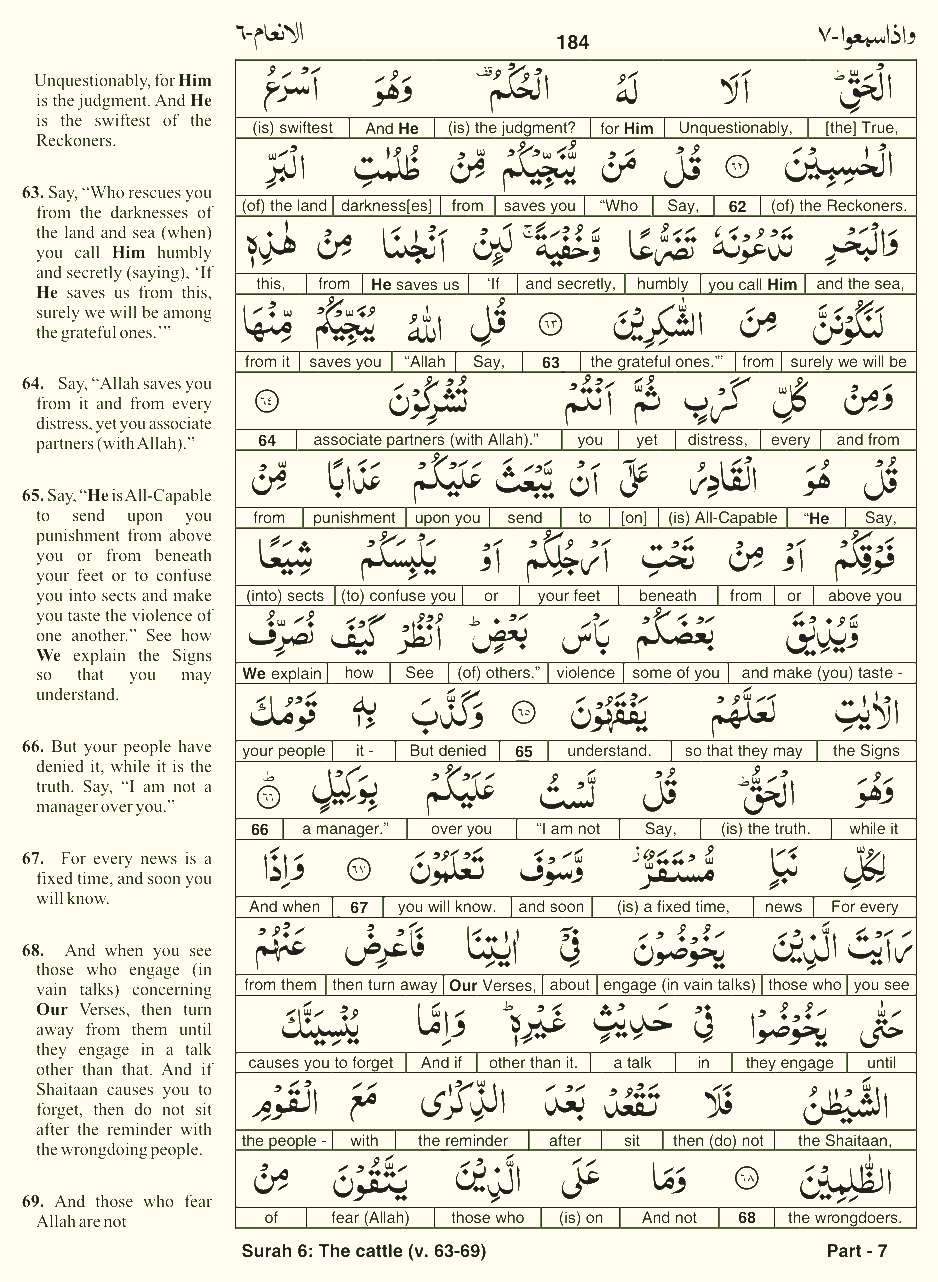 واذاسمعوا-٧ 184 الانعام-٦
Unquestionably, for Him
is the judgment. And He
is the swiftest of the
Reckoners.
63. Say, “Who rescues you
from the darknesses of
the land and sea (when)
you call Him humbly
and secretly (saying), ‘If
He saves us from this,
surely we will be among
the grateful ones.’”
64. Say, “Allah saves you
from it and from every
distress, yet you associate
partners (with Allah).”
65. Say, “He is All-Capable
to send upon you
punishment from above
you or from beneath
your feet or to confuse
you into sects and make
you taste the violence of
one another.” See how
We explain the Signs
so that you may
understand.
66. But your people have
denied it, while it is the
truth. Say, “I am not a
manager over you.”
67. For every news is a
fixed time, and soon you
will know.
68. And when you see
those who engage (in
vain talks) concerning
Our Verses, then turn
away from them until
they engage in a talk
other than that. And if
Shaitaan causes you to
forget, then do not sit
after the reminder with
the wrongdoing people.
69. And those who fear
Allah are not
الْحَقِّ ؕ اَلَا لَهُ الْحُكْمُ ۫ وَهُوَ اَسْرَعُ
(is) swiftest And He (is) the judgment? for Him Unquestionably, [the] True,
الْحٰسِبِيْنَ ٦٢ قُلْ مَنْ يُّنَجِّيْكُمْ مِّنْ ظُلُمٰتِ الْبَرِّ
(of) the land darkness[es] from saves you “Who Say, 62 (of) the Reckoners.
وَالْبَحْرِ تَدْعُوْنَهٗ تَضَرُّعًا وَّخُفْيَةً ۚ لَئِنْ اَنْجٰىنَا مِنْ هٰذِهٖ
this, from He saves us ‘If and secretly, humbly you call Him and the sea,
لَنَكُوْنَنَّ مِنَ الشّٰكِرِيْنَ ٦٣ قُلِ اللّٰهُ يُنَجِّيْكُمْ مِّنْهَا
from it saves you “Allah Say, 63 the grateful ones.’” from surely we will be
وَمِنْ كُلِّ كَرْبٍ ثُمَّ اَنْتُمْ تُشْرِكُوْنَ ٦٤
64 associate partners (with Allah).” you yet distress, every and from
قُلْ هُوَ الْقَادِرُ عَلٰٓى اَنْ يَّبْعَثَ عَلَيْكُمْ عَذَابًا مِّنْ
from punishment upon you send to [on] (is) All-Capable “He Say,
فَوْقِكُمْ اَوْ مِنْ تَحْتِ اَرْجُلِكُمْ اَوْ يَلْبِسَكُمْ شِيَعًا
(into) sects (to) confuse you or your feet beneath from or above you
وَّيُذِيْقَ بَعْضَكُمْ بَاْسَ بَعْضٍ ؕ اُنْظُرْ كَيْفَ نُصَرِّفُ
We explain how See (of) others.” violence some of you and make (you) taste -
الْاٰيٰتِ لَعَلَّهُمْ يَفْقَهُوْنَ ٦٥ وَكَذَّبَ بِهٖ قَوْمُكَ
your people it - But denied 65 understand. so that they may the Signs
وَهُوَ الْحَقُّ ؕ قُلْ لَّسْتُ عَلَيْكُمْ بِوَكِيْلٍ ؕ ٦٦
66 a manager.” over you “I am not Say, (is) the truth. while it
لِكُلِّ نَبَاٍ مُّسْتَقَرٌّ ۫ وَّسَوْفَ تَعْلَمُوْنَ ٦٧ وَاِذَا
And when 67 you will know. and soon (is) a fixed time, news For every
رَاَيْتَ الَّذِيْنَ يَخُوْضُوْنَ فِيْٓ اٰيٰتِنَا فَاَعْرِضْ عَنْهُمْ
from them then turn away Our Verses, about engage (in vain talks) those who you see
حَتّٰى يَخُوْضُوْا فِيْ حَدِيْثٍ غَيْرِهٖ ؕ وَاِمَّا يُنْسِيَنَّكَ
causes you to forget And if other than it. a talk in they engage until
الشَّيْطٰنُ فَلَا تَقْعُدْ بَعْدَ الذِّكْرٰى مَعَ الْقَوْمِ
the people - with the reminder after sit then (do) not the Shaitaan,
الظّٰلِمِيْنَ ٦٨ وَمَا عَلَى الَّذِيْنَ يَتَّقُوْنَ مِنْ
of fear (Allah) those who (is) on And not 68 the wrongdoers.
Surah 6: The cattle (v. 63-69) Part - 7